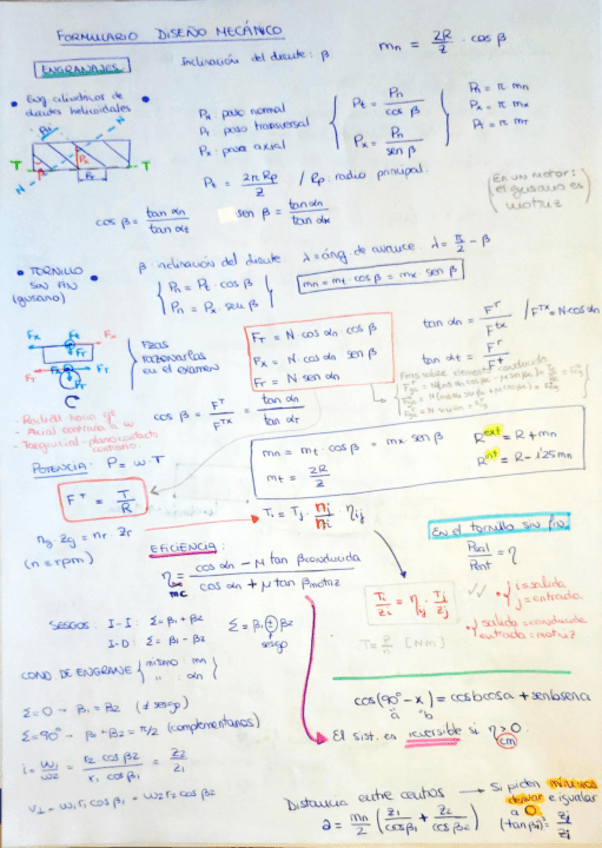 FORMULARIO DISEÑO MECÁNICO
ENGRANAJES
Inclinación del diente: β
mn = 2R/Z · cos β
• Eng. cilíndricos de dientes helicoidales •
Pn: paso normal
Pt: paso transversal
Px: paso axial
Pt = Pn/cos β
Px = Pn/sen β
Pn = π mn
Px = π mx
Pt = π mT
T T
N N
Pt = 2π Rp/Z / Rp: radio principal.
(En un motor: el gusano es motriz)
cos β = tan αn/tan αt
sen β = tan αn/tan αx
• TORNILLO SIN FIN • (gusano)
β: inclinación del diente. λ = áng. de avance. λ = π/2 - β
Pn = Pt · cos β
Pn = Px · sen β
mn = mt cos β = mx sen β
Fzas razonarlas en el examen
FT = N · cos αn cos β
Fx = N · cos αn sen β
Fr = N sen αn
tan αn = F^r/F^tx / F^Tx = N · cos αn
tan αt = F^r/F^t
Fzas sobre elemento conducido
cos β = F^T/F^Tx = tan αn/tan αT
- Axial contrario a ω
- Tangencial - plano contacto contrario.
mn = mt · cos β = mx sen β
mt = 2R/Z
R^ext = R + mn
R^int = R - 1'25mn
POTENCIA: P = ω · T
F^T = T/R
Ti = Tj · nj/ni · ηij
ng Zg = nr Zr
(n = rpm)
EFICIENCIA:
η mc = cos αn - μ tan βconducida / cos αn + μ tan βmotriz
En el tornillo sin fin:
Psal/Pent = η
Ti/Zi = ηij · Tj/Zj
• i = salida
j = entrada
• salida = conducida
entrada = motriz
T = P/n [Nm]
SESGOS: I-I: Σ = β1 + β2
I-D: Σ = β1 - β2
Σ = β1 ± β2
sesgo
COND DE ENGRANE { mismo: mn
" : αn }
Σ = 0 → β1 = β2 (≠ sesgo)
Σ = 90° → β1 + β2 = π/2 (complementarios)
cos(90° - x) = cosbcosa + senbsena
a b
El sist. es reversible si η > 0
cm
i = ω1/ω2 = r2 cos β2/r1 cos β1 = Z2/Z1
V⊥ = ω1 r1 cos β1 = ω2 r2 cos β2
Distancia entre centros → Si piden mínimos derivar e igualar a 0.
a = mn/2 (Z1/cosβ1 + Z2/cosβ2)